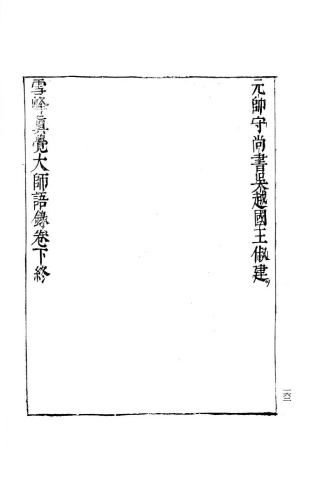 元帥守尚書吳越國王俶建
雪峰真覺大師語錄卷下終
一六二